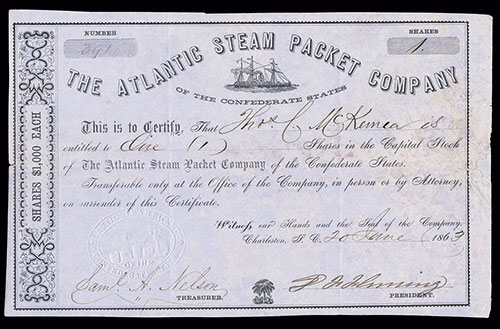 NUMBER
391
SHARES
1
THE ATLANTIC STEAM PACKET COMPANY
OF THE CONFEDERATE STATES
This is to Certify, That Thos C. McKenna is
entitled to One (1) Shares in the Capital Stock
of The Atlantic Steam Packet Company of the Confederate States.
Transferable only at the Office of the Company, in person or by Attorney,
on surrender of this Certificate.
Witness our Hands and the Seal of the Company,
Charleston, S. C. 20 June 1863
Saml. A. Nelson
TREASURER.
PRESIDENT.
SHARES $1,000 EACH